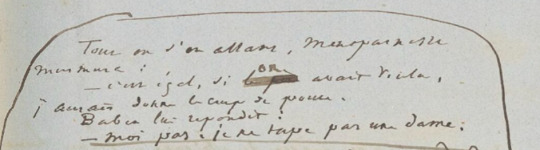 Tout en s'en allant, Montparnasse
murmura :
— c'est égal, si on avait voulu,
j'aurais donné le coup de pouce.
Babet lui répondit :
— moi pas. je ne tape pas une dame.